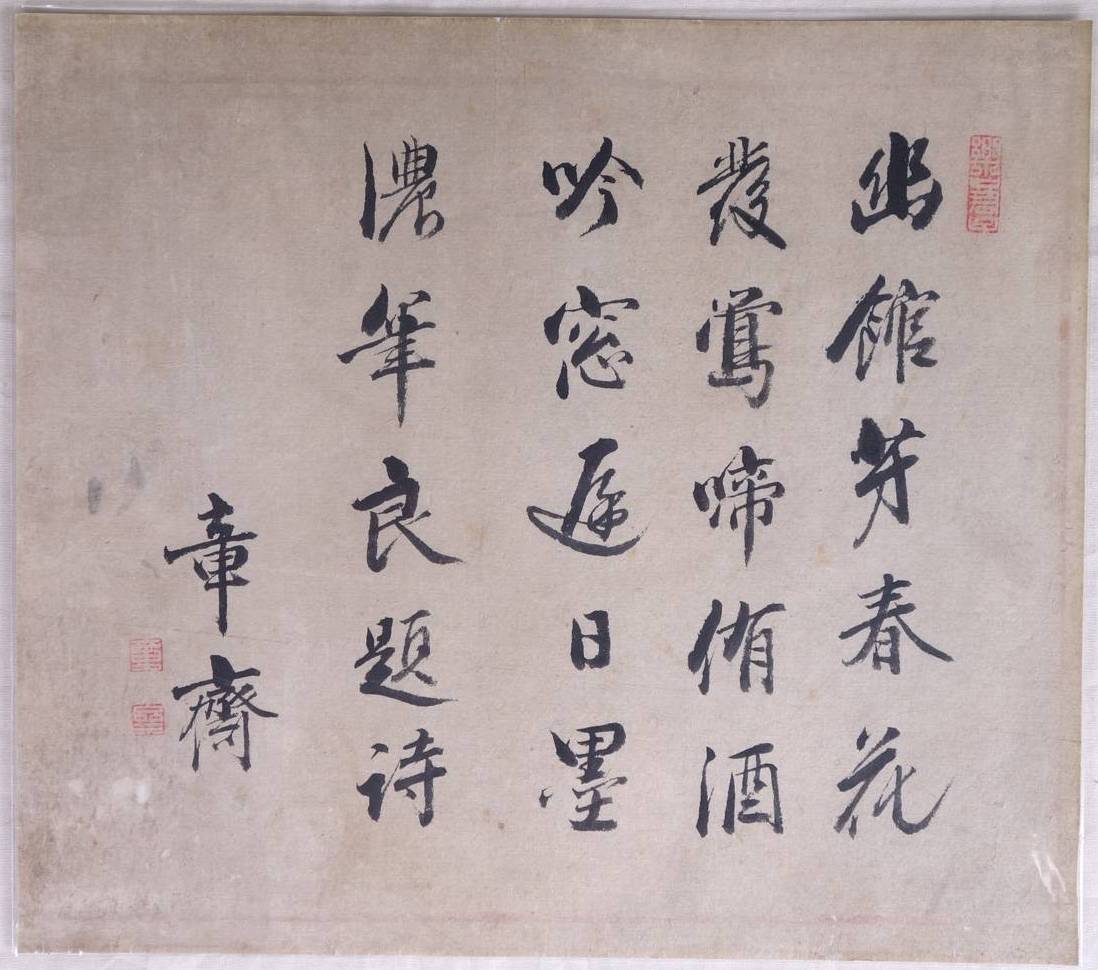 幽館芳春花
發鶯啼侑酒
吟窓遲日墨
濃筆良題詩
章齋